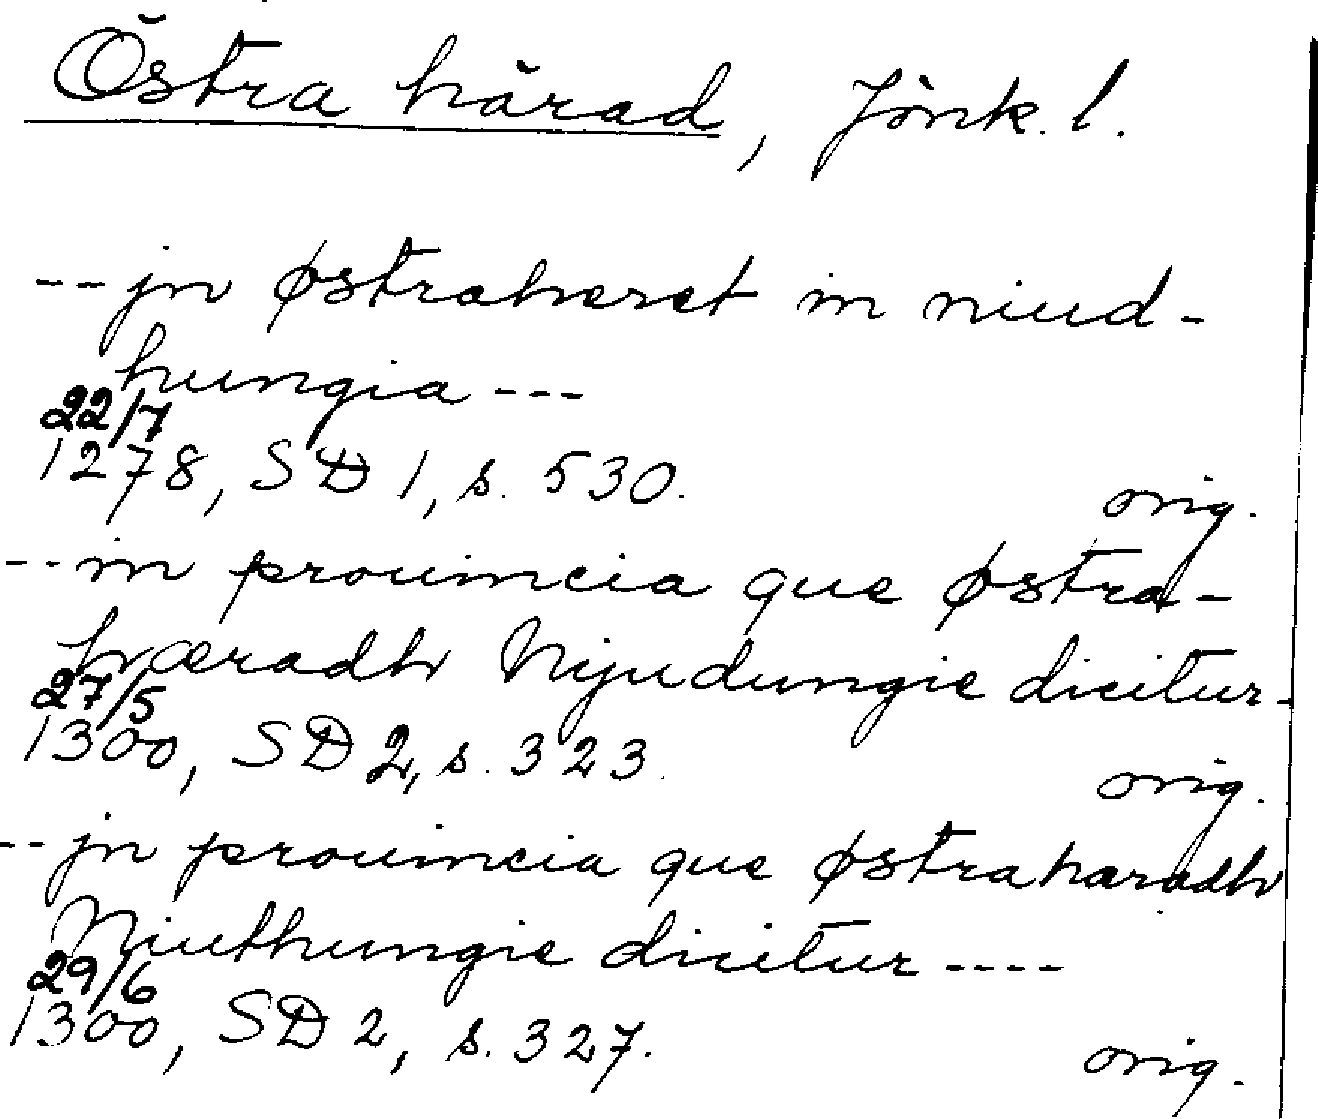 Östra härad, Jönk. l.
--jn østraheret in niud-
hungia---
22/7
1278, SD 1, s. 530.
orig.
--in prouincia que østra-
hæradh Nijudungie dicitur-
27/5
1300, SD 2, s. 323.
orig.
--jn prouincia que østraharadh
Niuthungie dicitur----
29/6
1300, SD 2, s. 327.
orig.